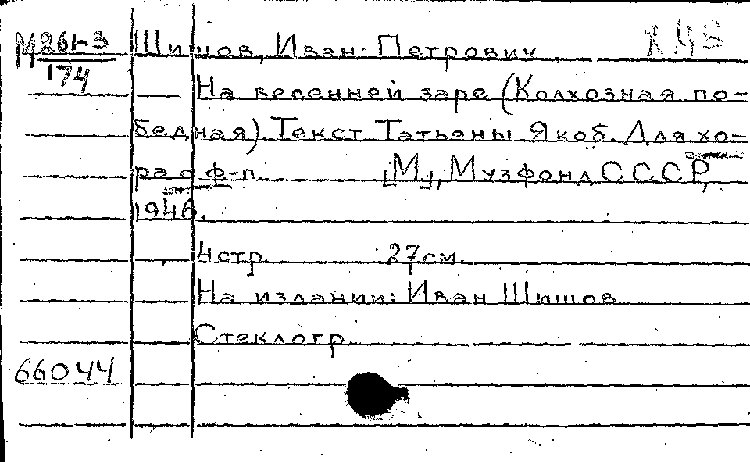 М 261-3 Шишов, Иван Петрович
174
На весенней заре (Колхозная по-
бедная). Текст Татьяны Якоб. Для хо-
ра с ф-п. [М], Музфонд СССР,
1946.
4 стр. 27 см.
На издании: Иван Шишов
Стеклогр.
66044